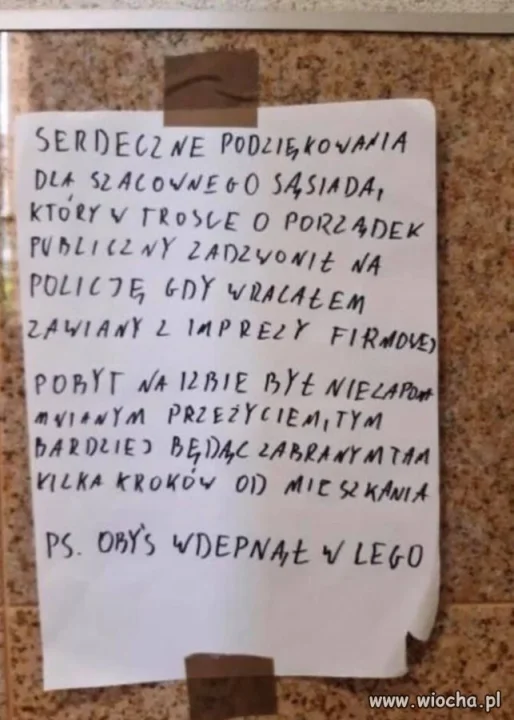 SERDECZNE PODZIĘKOWANIA
DLA SZACOWNEGO SĄSIADA,
KTÓRY W TROSCE O PORZĄDEK
PUBLICZNY ZADZWONIŁ NA
POLICJĘ GDY WRACAŁEM
ZAWIANY Z IMPREZY FIRMOWEJ
POBYT NA IZBIE BYŁ NIEZAPOM
MNIANYM PRZEŻYCIEM, TYM
BARDZIEJ BĘDĄC ZABRANYM TAM
KILKA KROKÓW OD MIESZKANIA
PS. OBYŚ WDEPNĄŁ W LEGO
www.wiocha.pl